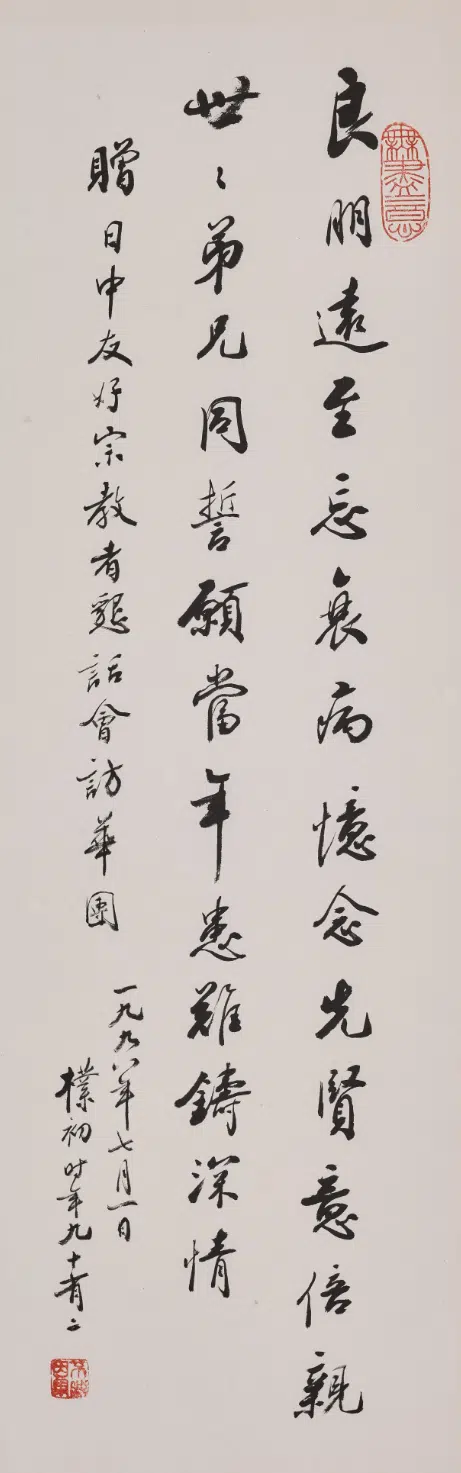 良朋遠至忘衰病憶念先賢意倍親
世々弟兄同誓願當年患難鑄深情
贈日中友好宗教者懇話會訪華團
一九九八年七月一日
樸初时年九十有二
無盡意